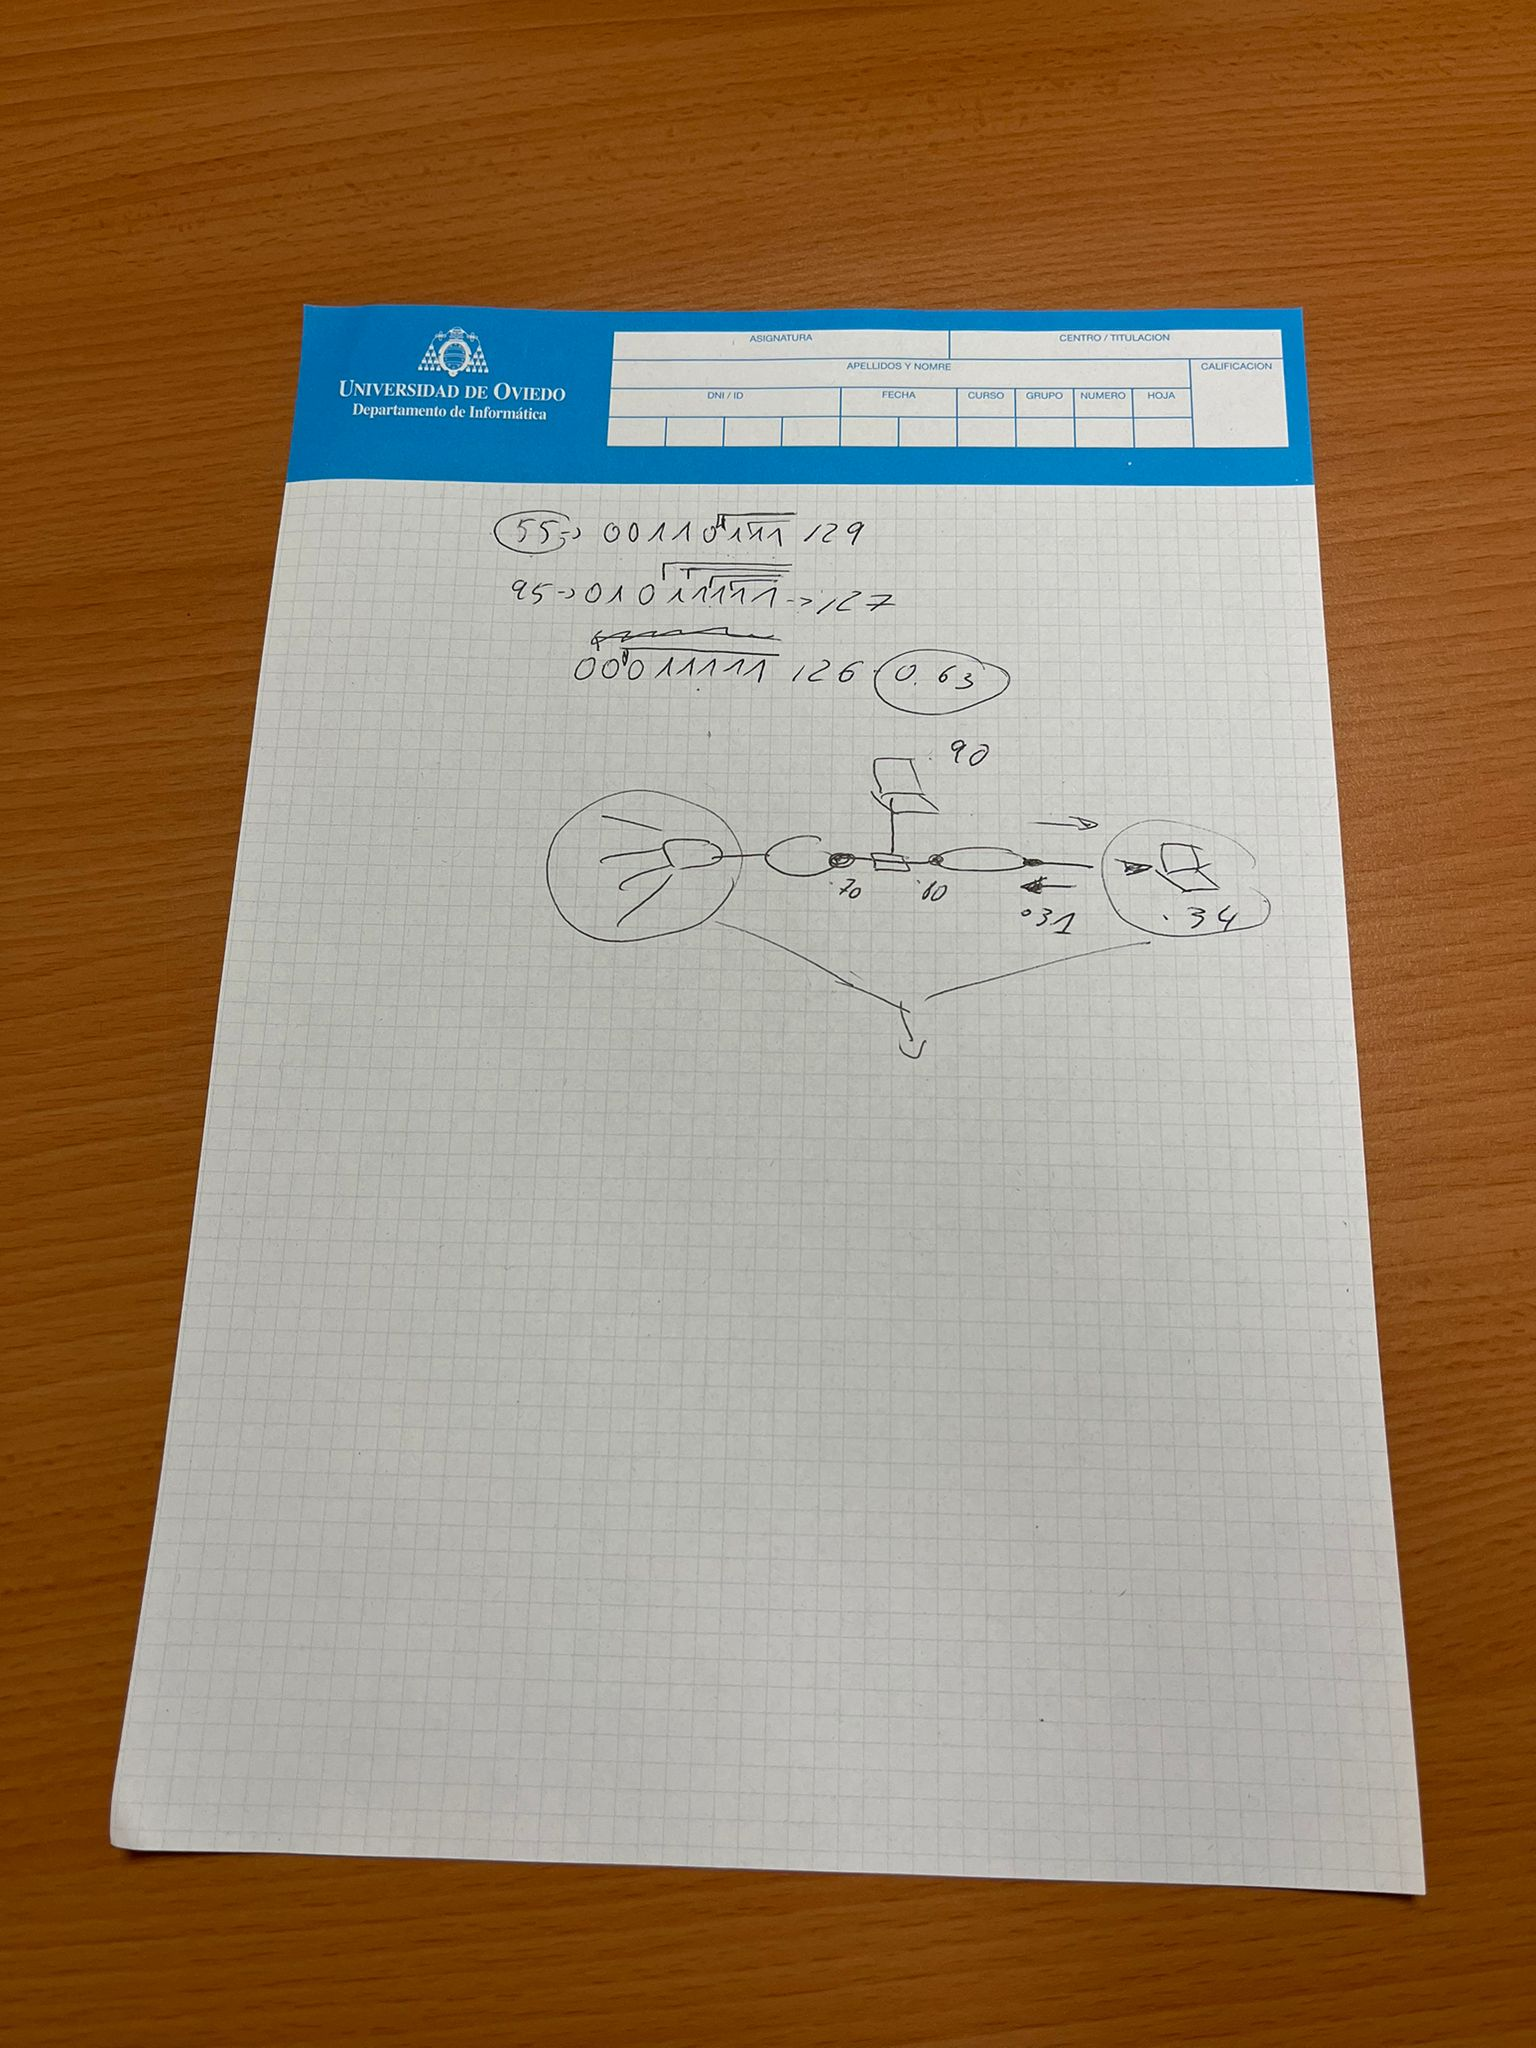 UNIVERSIDAD DE OVIEDO
Departamento de Informática
ASIGNATURA
CENTRO / TITULACION
APELLIDOS Y NOMRE
CALIFICACION
DNI / ID
FECHA
CURSO
GRUPO
NUMERO
HOJA
55 → 00110111 129
95 → 01011111 → 127
00011111 126 0.63
90
.70
.80
.31
.34